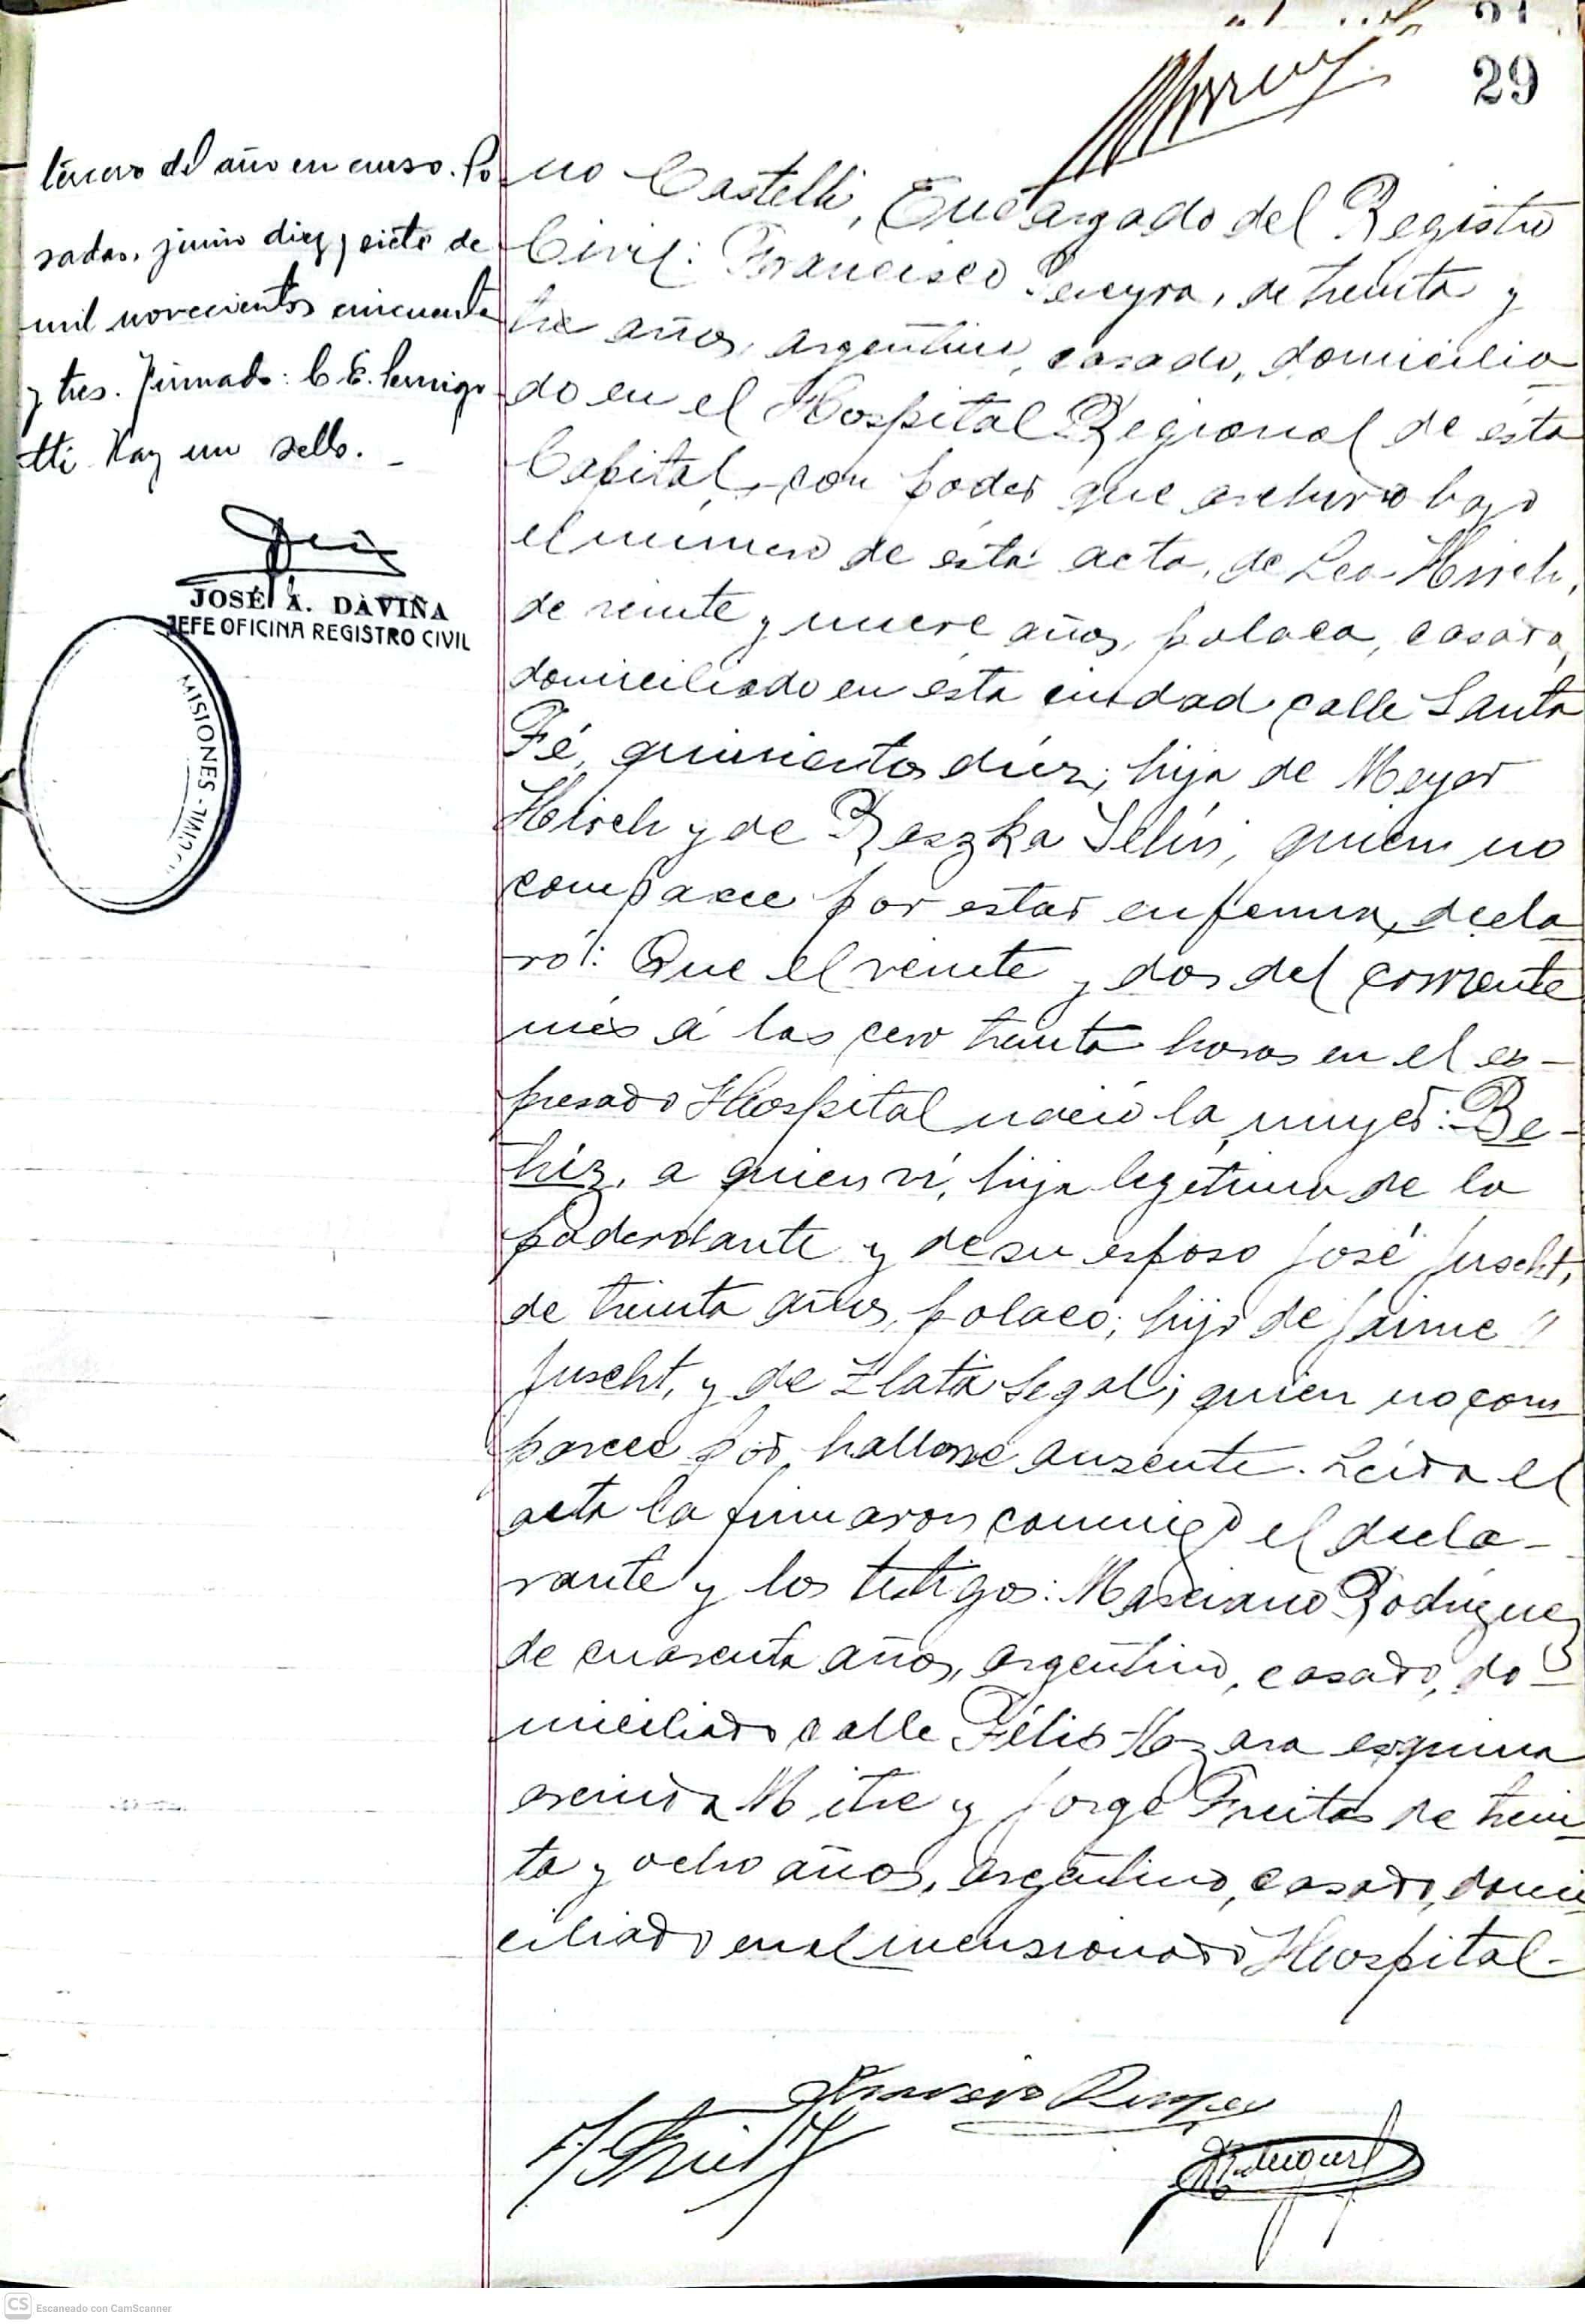 29
tercero del año en curso. Po
sadas, junio diez y siete de
mil novecientos cincuenta
y tres. Firmado: C. E.
tti Hay un sello. -
JOSÉ A. DAVIÑA
JEFE OFICINA REGISTRO CIVIL
MISIONES
no Castelli, Encargado del Registro
Civil: Francisco Pereyra, de treinta y
tres años, argentino, casado, domicilia
do en el Hospital Regional de ésta
Capital, con poder que archivo bajo
el número de ésta acta, de Lea Hirsch,
de veinte y nueve años, polaca, casada,
domiciliado en ésta ciudad calle Santa
Fé, quinientos diez; hija de Meyer
Hirsch y de Reszka, quien no
comparece por estar enferma, decla
ró: Que el veinte y dos del corriente
més á las cero treinta horas en el ex-
presado Hospital nació la mujer: Be-
triz, a quien ví, hija legítima de la
poderdante y de su esposo José Juscht,
de treinta años, polaco; hijo de Jaime
Juscht, y de Zlata Segal; quien no com
parece por hallarse ausente. Leída el
acta la firmaron conmigo el decla-
rante y los testigos: Marciano Rodríguez
de cuarenta años, argentino, casado, do-
miciliado calle Félis Azara esquina
avenida Mitre y Jorge Freitas de trein
ta y ocho años, argentino, casado, domi
ciliado en el mensionado Hospital-
CS Escaneado con CamScanner